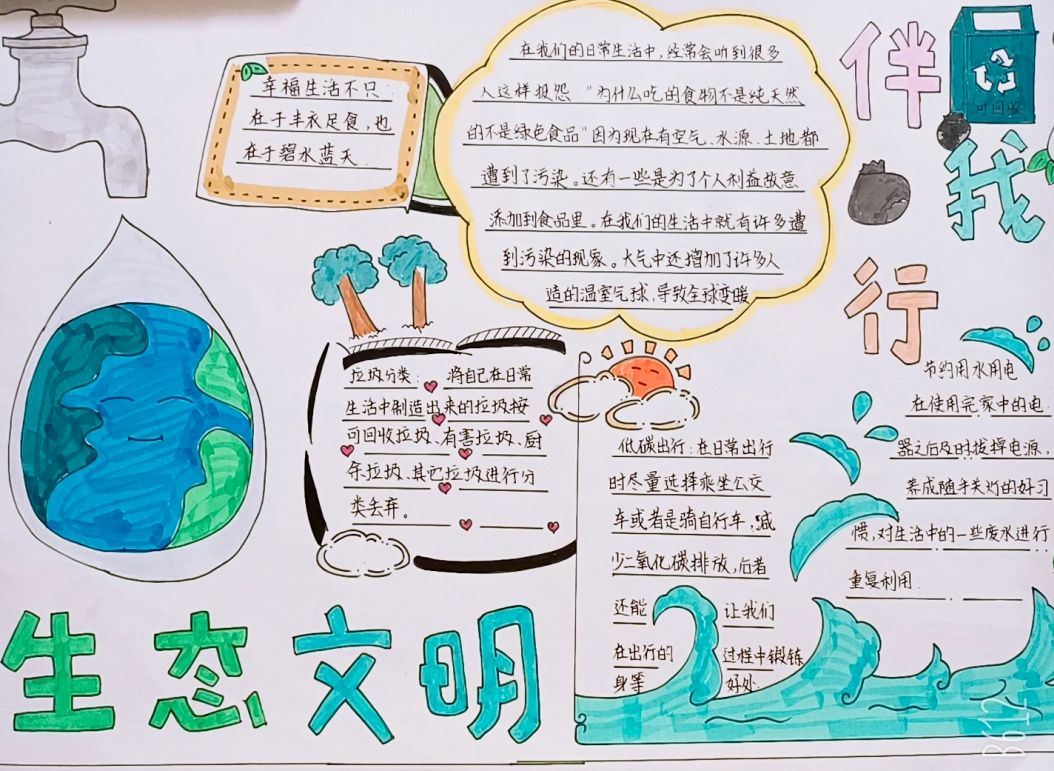 幸福生活不只
在于丰衣足食,也
在于碧水蓝天.
在我们的日常生活中,经常会听到很多
人这样报怨 "为什么吃的食物不是纯天然
的不是绿色食品"因为现在有空气、水源、土地都
遭到了污染。还有一些是为了个人利益故意
添加到食品里。在我们的生活中就有许多遭
到污染的现象。大气中还增加了许多人
造的温室气球,导致全球变暖
伴
我
行
可回收
垃圾分类: 将自己在日常
生活中制造出来的垃圾按
可回收垃圾、有害垃圾、厨
余垃圾、其它垃圾进行分
类丢弃。
低碳出行:在日常出行
时尽量选择乘坐公交
车或者是骑自行车,减
少二氧化碳排放,后者
还能 让我们
在出行的 过程中锻铩
身等 好处.
节约用水用电
在使用完家中的电
器之后及时拔掉电源,
养成随手关灯的好习
惯,对生活中的一些废水进行
重复利用.
生态文明
B612